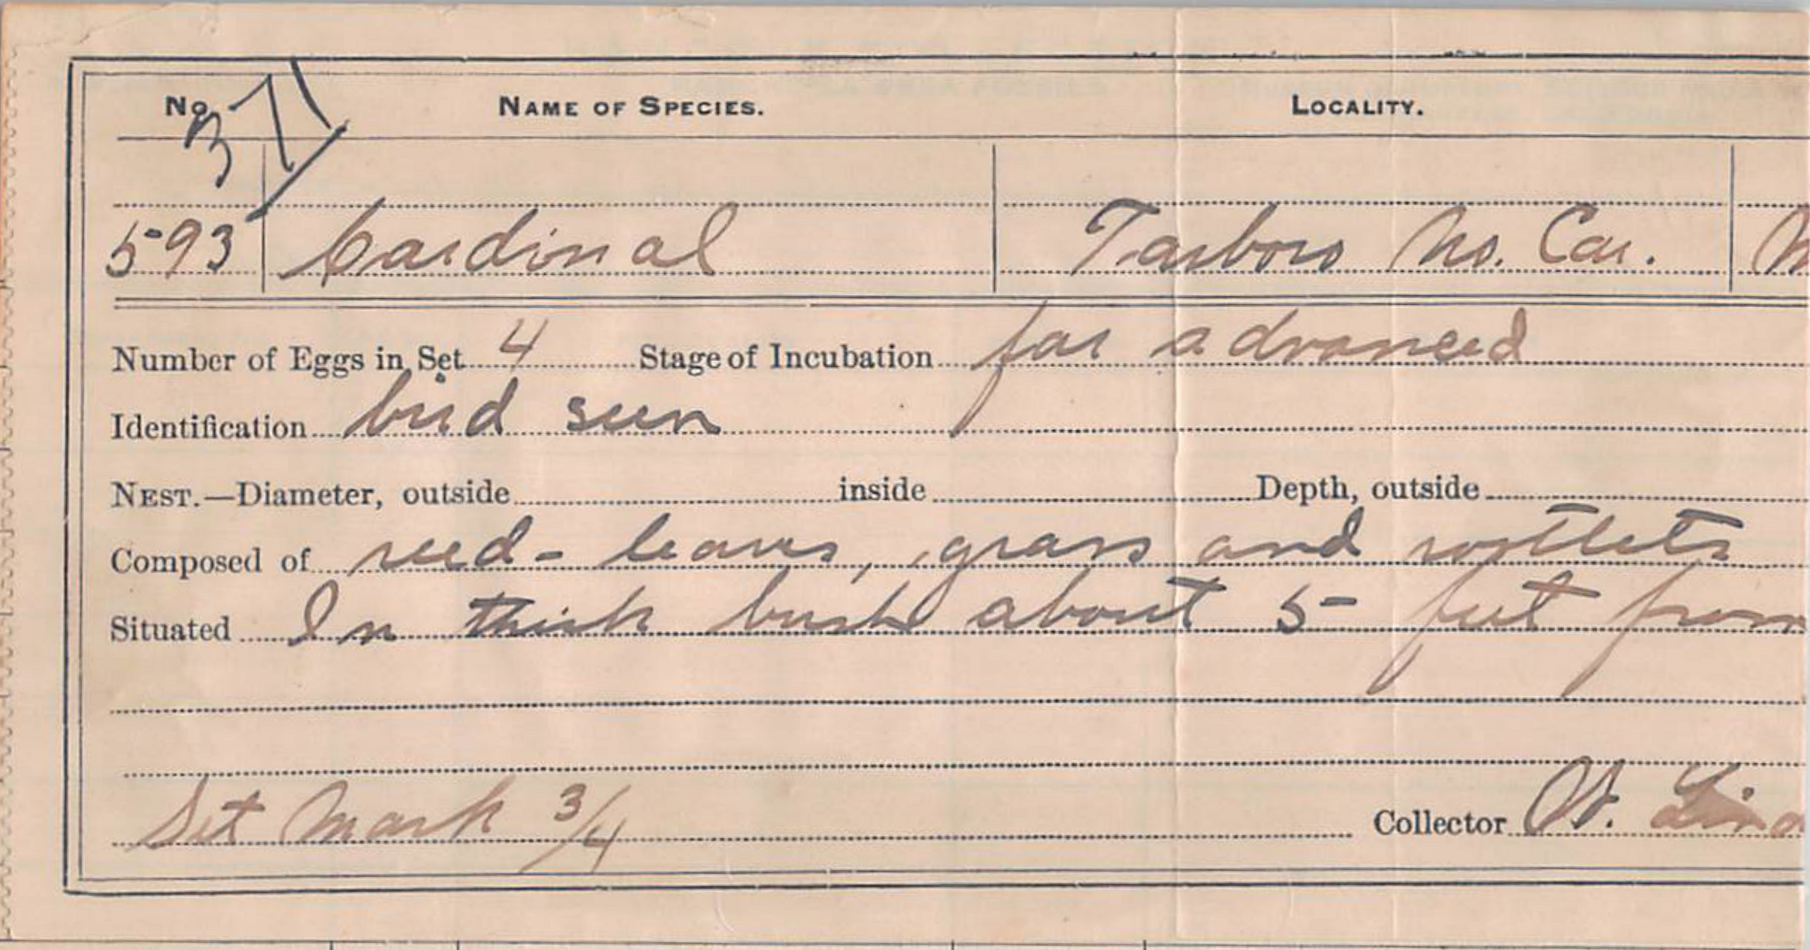 No. NAME OF SPECIES. LOCALITY.
371
593 Cardinal Tarboro No. Car.
Number of Eggs in Set 4 Stage of Incubation far advanced
Identification bird seen
NEST.—Diameter, outside inside Depth, outside
Composed of reed-leaves, grass and rootlets
Situated In thick bush about 5 feet from
Set Mark 3/4 Collector